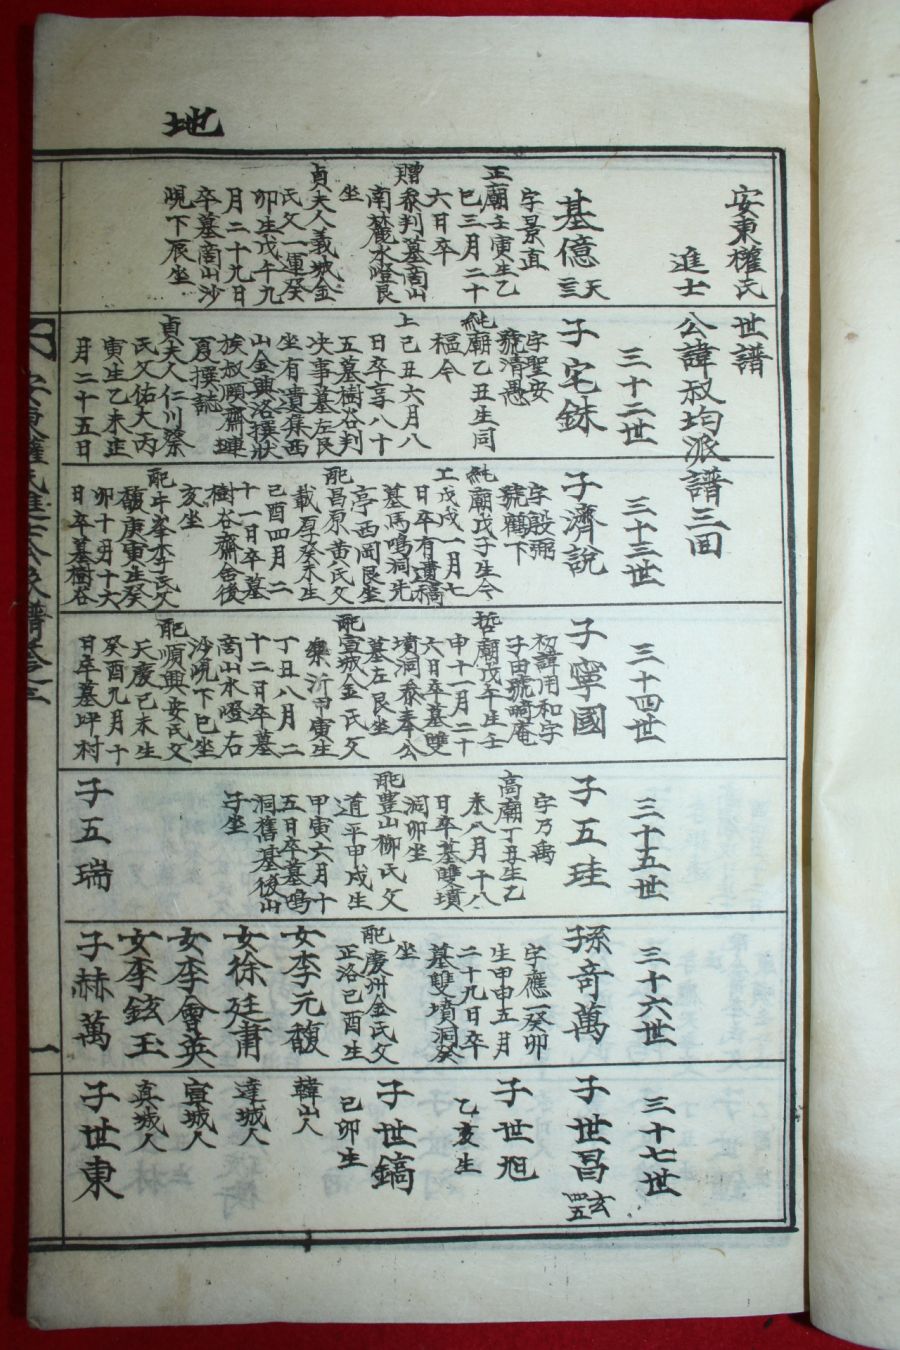 地
安東權氏世譜
進士公諱叔均派譜三回
基億
天三
字景直
正廟壬寅生乙
巳三月二十
六日卒
贈參判墓商山
南麓水嶝艮
坐
貞夫人義城金
氏父一運癸
卯生戊午九
月二十九日
卒墓商山沙
峴下辰坐
三十二世
子宅銖
字聖安
號清愚
純廟乙丑生同
樞今
上己丑六月八
日卒享八十
五墓樹谷判
決事墓左艮
坐有遺集西
山金興洛撰狀
族叔頤齋璉
夏撰誌
貞夫人仁川蔡
氏父佑大丙
寅生乙未正
月二十五日
三十三世
子濟說
字殷弼
號鶴下
純廟戊子生今
上戊戌一月七
日卒有遺稿
墓馬鳴洞先
亭西岡艮坐
配昌原黃氏父
載厚癸未生
己酉四月二
十一日卒墓
樹谷齋舍後
亥坐
配牛峯李氏父
馥庚寅生癸
卯十月十六
日卒墓樹谷
三十四世
子寧國
初諱用和字
子由號畸庵
哲廟戊午生壬
申十一月二十
六日卒墓雙
墳洞參奉公
墓左艮坐
配宣城金氏父
樂沂甲寅生
丁丑八月二
十二日卒墓
商山水嶝右
沙峴下巳坐
配順興安氏父
天慶己未生
癸酉九月十
日卒墓坪村
三十五世
子五珪
字乃禹
高廟丁丑生乙
未八月十八
日卒墓雙墳
洞卯坐
配豊山柳氏父
道平甲戌生
甲寅六月十
五日卒墓鳴
洞舊基後山
子坐
子五瑞
三十六世
孫奇萬
字應一癸卯
生甲申五月
二十九日卒
墓雙墳洞癸
坐
配慶州金氏父
正洛己酉生
女李元馥
女徐廷肅
女李會英
女李鉉玉
子赫萬
三十七世
子世昌
玄四五
子世旭
乙亥生
子世鎬
己卯生
韓山人
達城人
宣城人
真城人
子世東
安東權氏進士公派譜卷之三
一